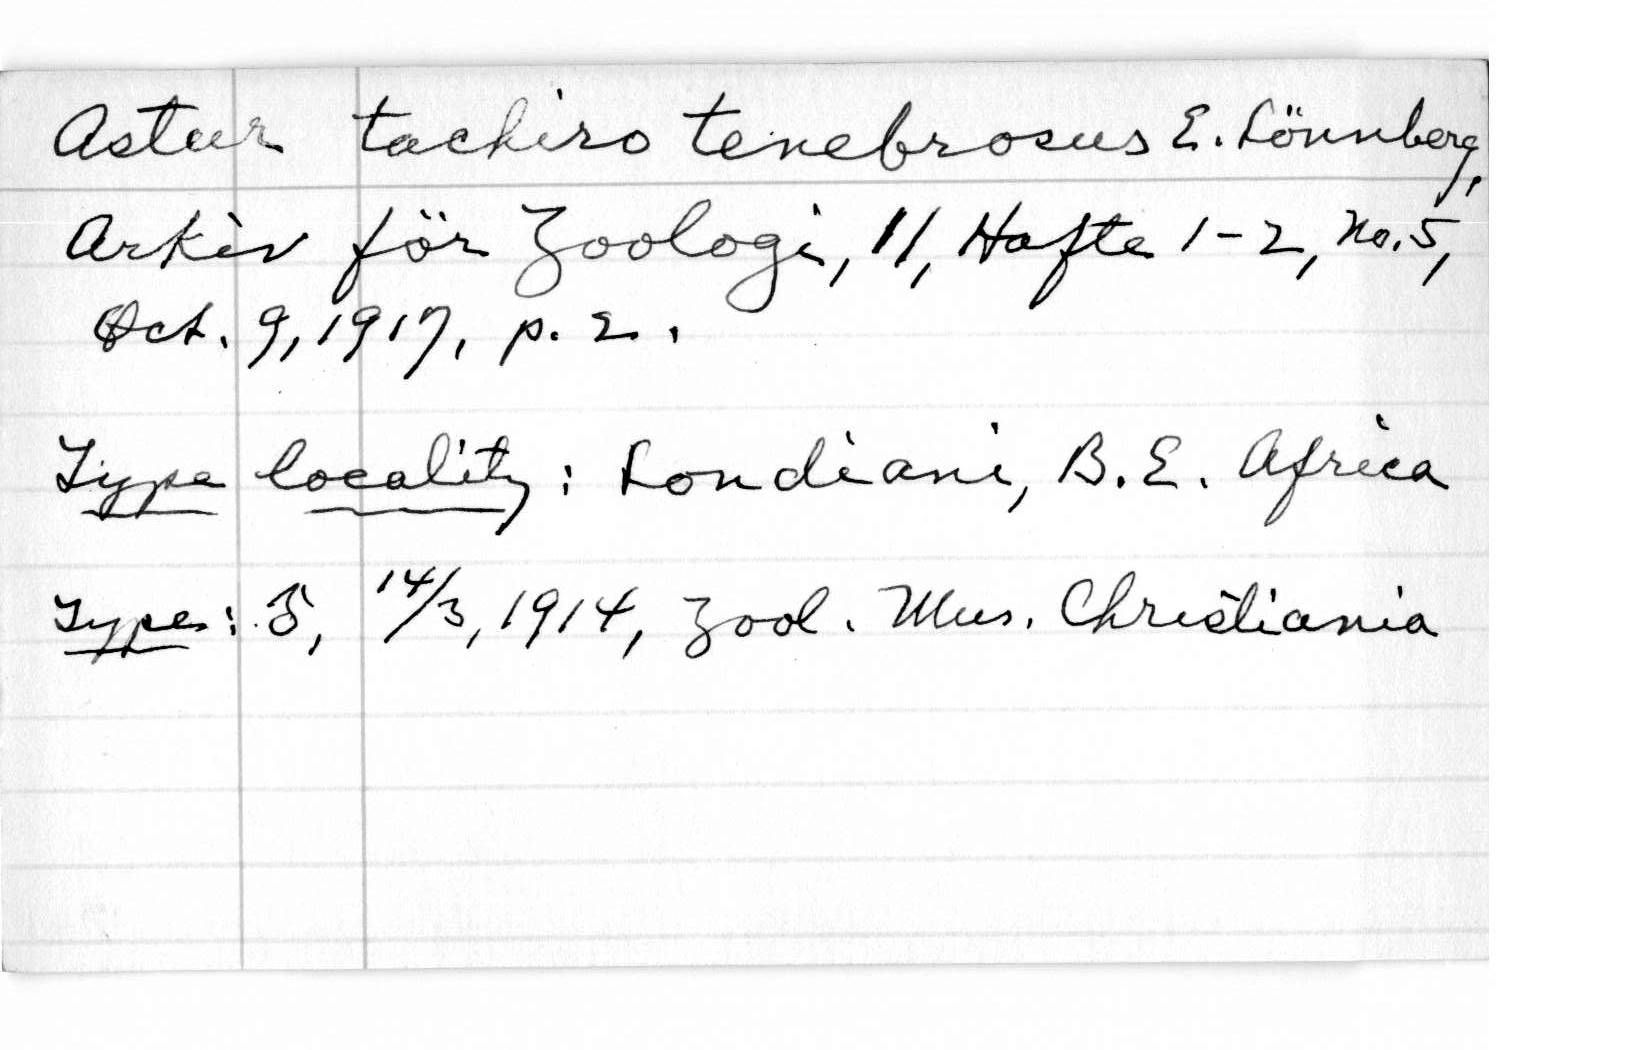 Astur tachiro tenebrosus E. Lönnberg,
Arkiv för Zoologi, 11, Hafte 1-2, No. 5,
Oct. 9, 1917, p. 2.
Type locality: Londiani, B.E. Africa
Type: ♂, 14/3, 1914, Zool. Mus. Christiania